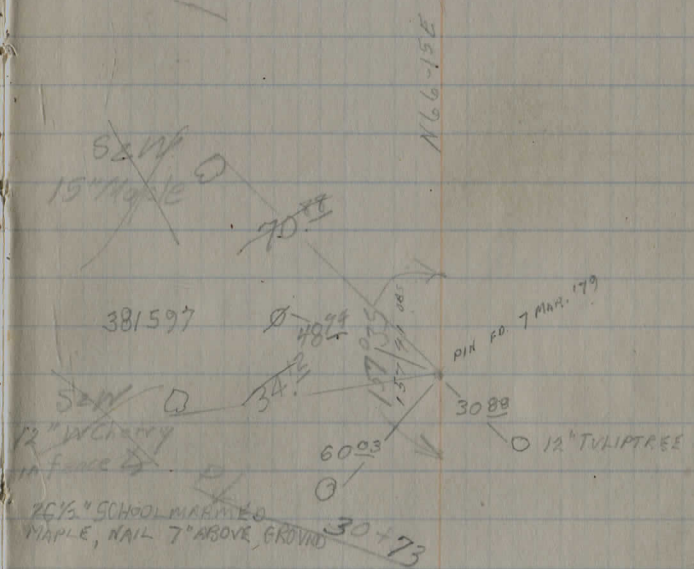 N66-152
S & W
15" Maple
70.88
PIN FD. 7 MAR. '79
381597
48.99
34.2
S & W
12" W Cherry
in fence
30.88
12" TULIPTREE
60.03
26½" SCHOOLMARMED
MAPLE, NAIL 7" ABOVE GROUND
30+73